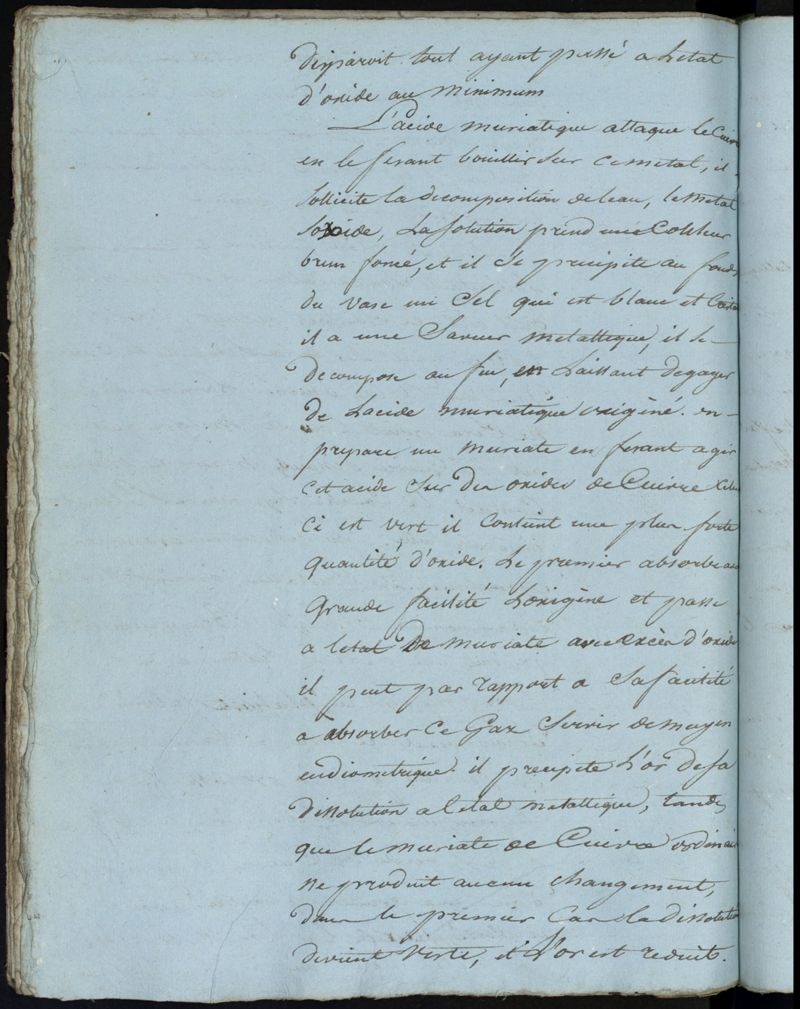 disparoit tout ayant passé a letat
d'oxide au minimum
L'acide muriatique attaque le Cuivre
en le fesant bouillir sur ce metal, il
sollicite la decomposition de leau, le metal
soxide, La solution prend une Couleur
brun foncé, et il se precipite au fond
du vase un Sel qui est blanc et
il a une Saveur metallique, il se
decompose au feu, en Laissant degager
de Lacide muriatique oxigéné. on
prepare un muriate en fesant agir
cet acide sur des oxides de Cuivre Celui
ci est vert il contient une plus forte
quantité d'oxide. Le premier absorbe avec
grande facilité Loxigène et passe
a letat De muriate avec excès d'oxide
il peut par rapport a sa facilité
a absorber Ce Gaz Servir de moyen
eudiometrique. il precipite L'or de sa
dissolution a letat metallique, tandis
que le muriate de Cuivre ordinai
ne produit aucun changement,
dans le premier Cas la dissolution
devient verte, et L'or est reduit.